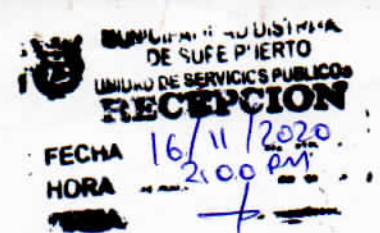 DE SUPE PUERTO
UNIDAD DE SERVICIOS PUBLICOS
RECEPCION
FECHA 16/11/2020
HORA 2:00 PM